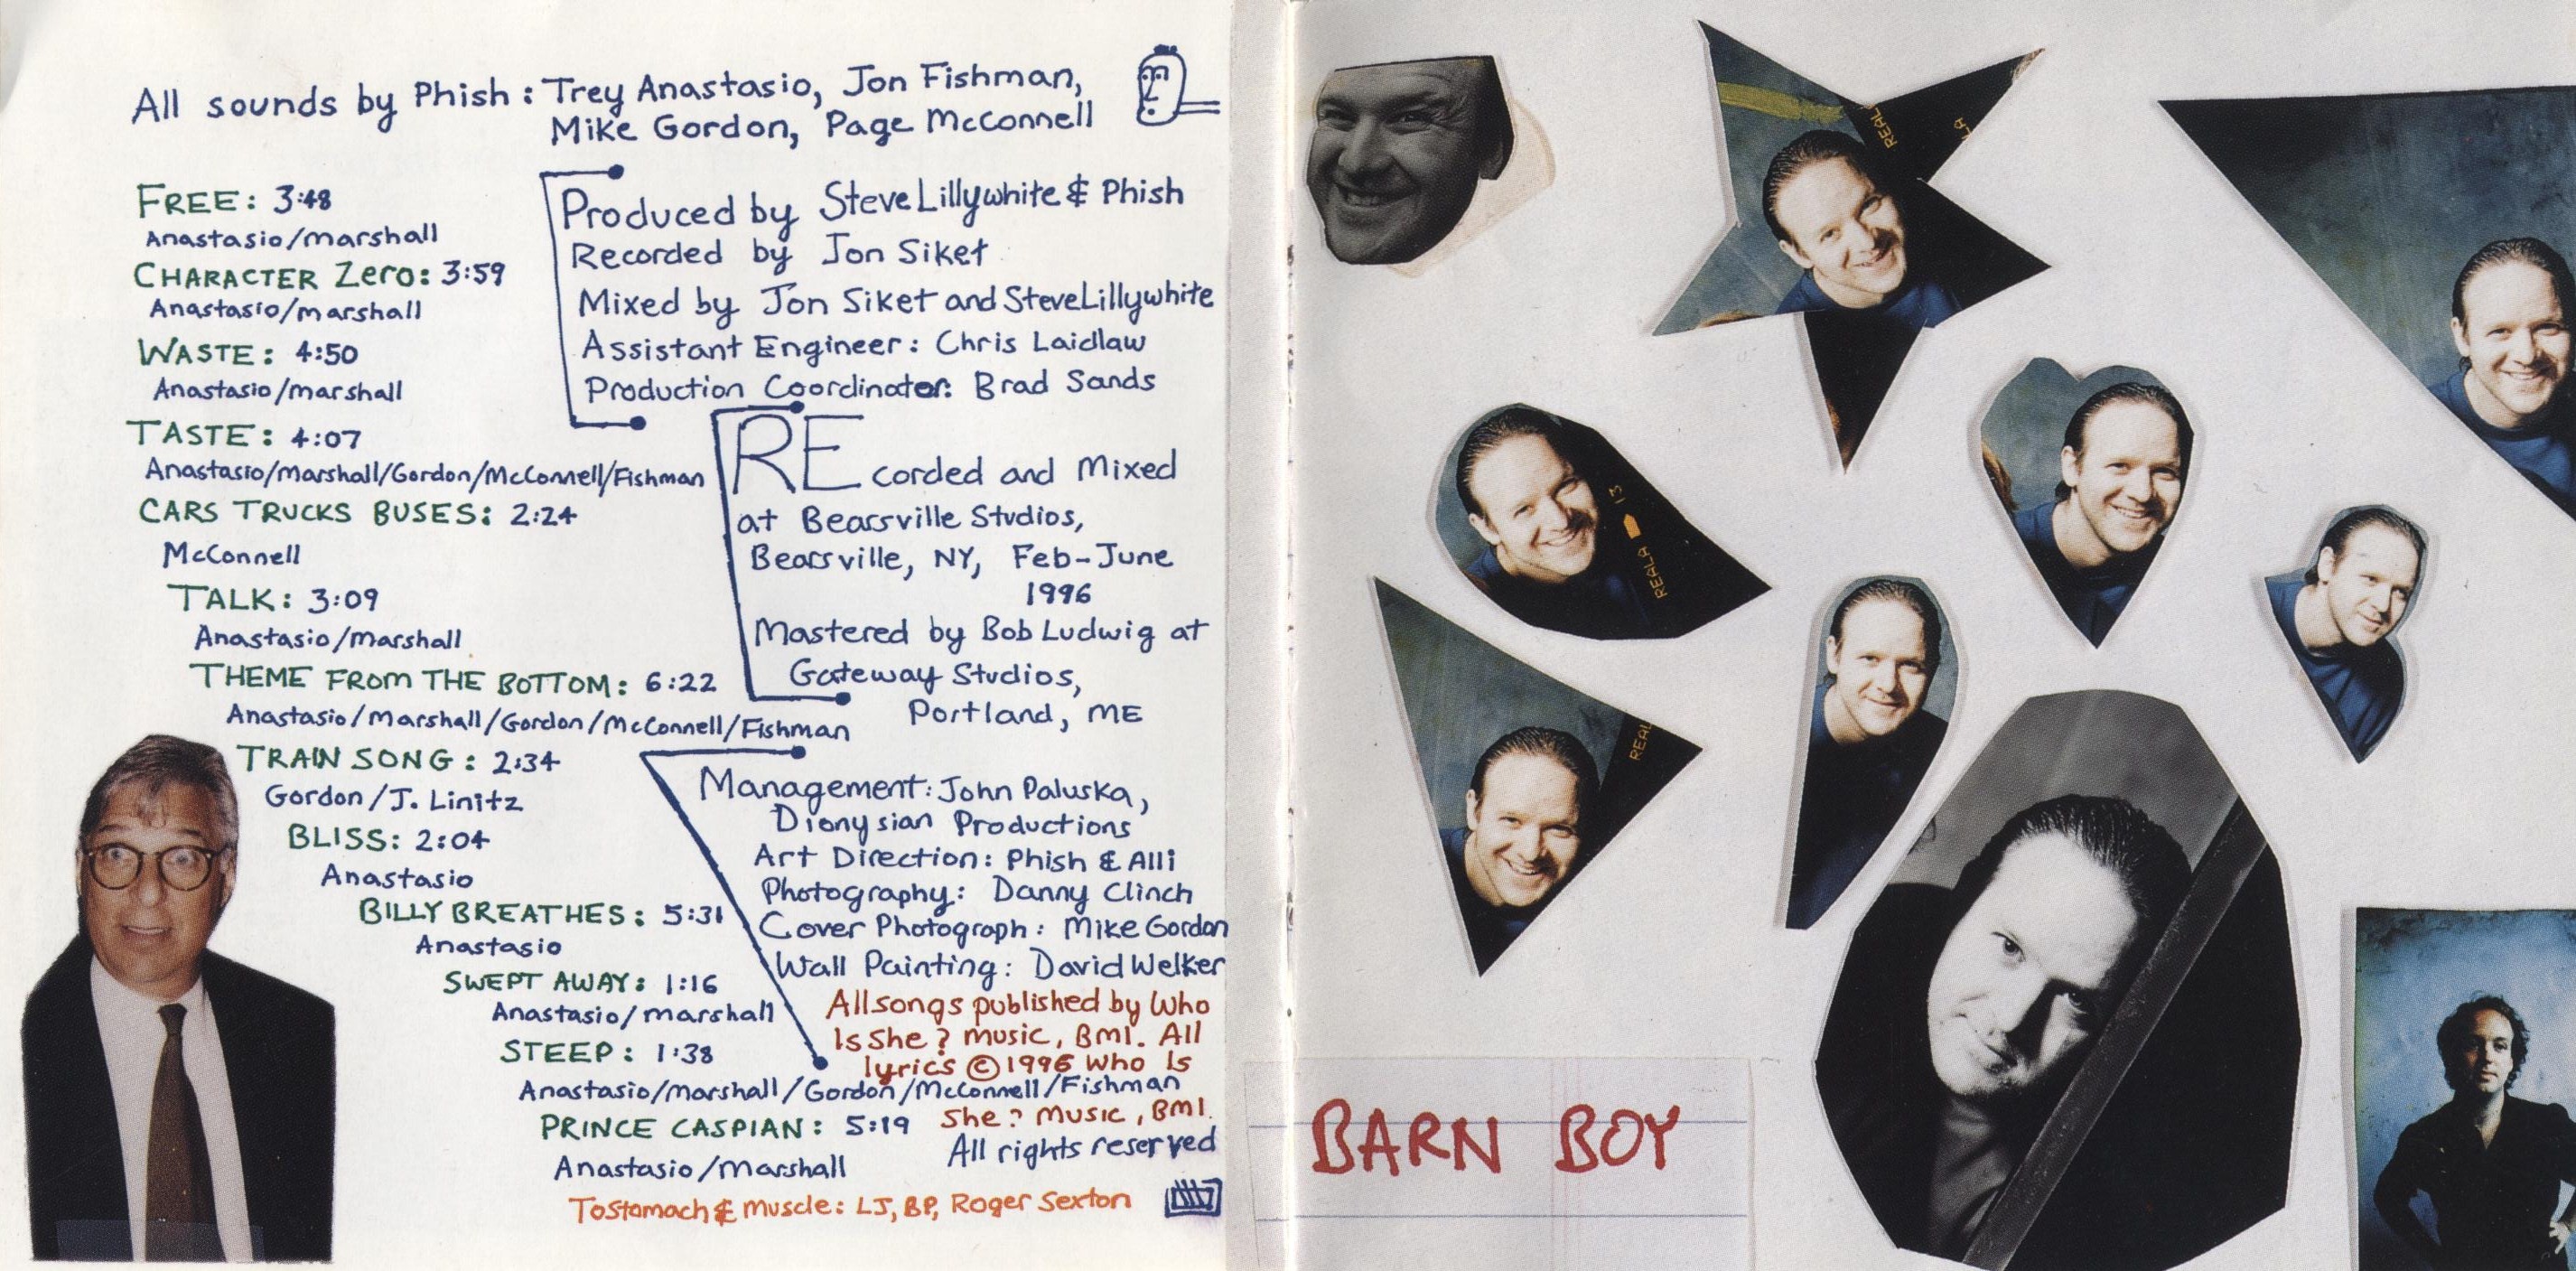 All sounds by Phish: Trey Anastasio, Jon Fishman,
Mike Gordon, Page McConnell
FREE: 3:48
Anastasio/marshall
CHARACTER Zero: 3:59
Anastasio/marshall
WASTE: 4:50
Anastasio/marshall
TASTE: 4:07
Anastasio/marshall/Gordon/McConnell/Fishman
CARS TRUCKS BUSES: 2:24
McConnell
TALK: 3:09
Anastasio/marshall
THEME FROM THE BOTTOM: 6:22
Anastasio/marshall/Gordon/McConnell/Fishman
TRAIN SONG: 2:34
Gordon/J. Linitz
BLISS: 2:04
Anastasio
BILLY BREATHES: 5:31
Anastasio
SWEPT AWAY: 1:16
Anastasio/marshall
STEEP: 1:38
Anastasio/marshall/Gordon/McConnell/Fishman
PRINCE CASPIAN: 5:19
Anastasio/marshall
Produced by Steve Lillywhite & Phish
Recorded by Jon Siket
Mixed by Jon Siket and Steve Lillywhite
Assistant Engineer: Chris Laidlaw
Production Coordinator: Brad Sands
REcorded and Mixed
at Bearsville Studios,
Bearsville, NY, Feb-June
1996
Mastered by Bob Ludwig at
Gateway Studios,
Portland, ME
Management: John Paluska,
Dionysian Productions
Art Direction: Phish & Alli
Photography: Danny Clinch
Cover Photograph: Mike Gordon
Wall Painting: David Welker
All songs published by Who
Is She? music, BMI. All
lyrics ©1996 Who Is
She? Music, BMI.
All rights reserved
To Stomach & Muscle: LJ, BP, Roger Sexton
REAL
LA
REALA 13
REAL
BARN BOY